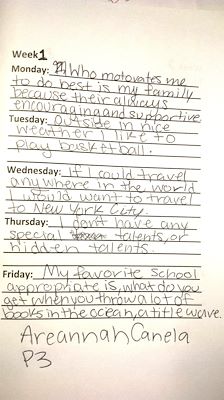 Week1
Monday: Who motovates me
to do best is my family
because their always
encouraging and supportive
Tuesday: Outside in nice
weather I like to
play basketball.
Wednesday: If I could travel
anywhere in the world
I would want to travel
to New York City.
Thursday: I don't have any
special talents, or
hidden talents.
Friday: My favorite school
appropriate is, what do you
get when you throw a lot of
books in the ocean, a title wave.
Areannah Canela
P3